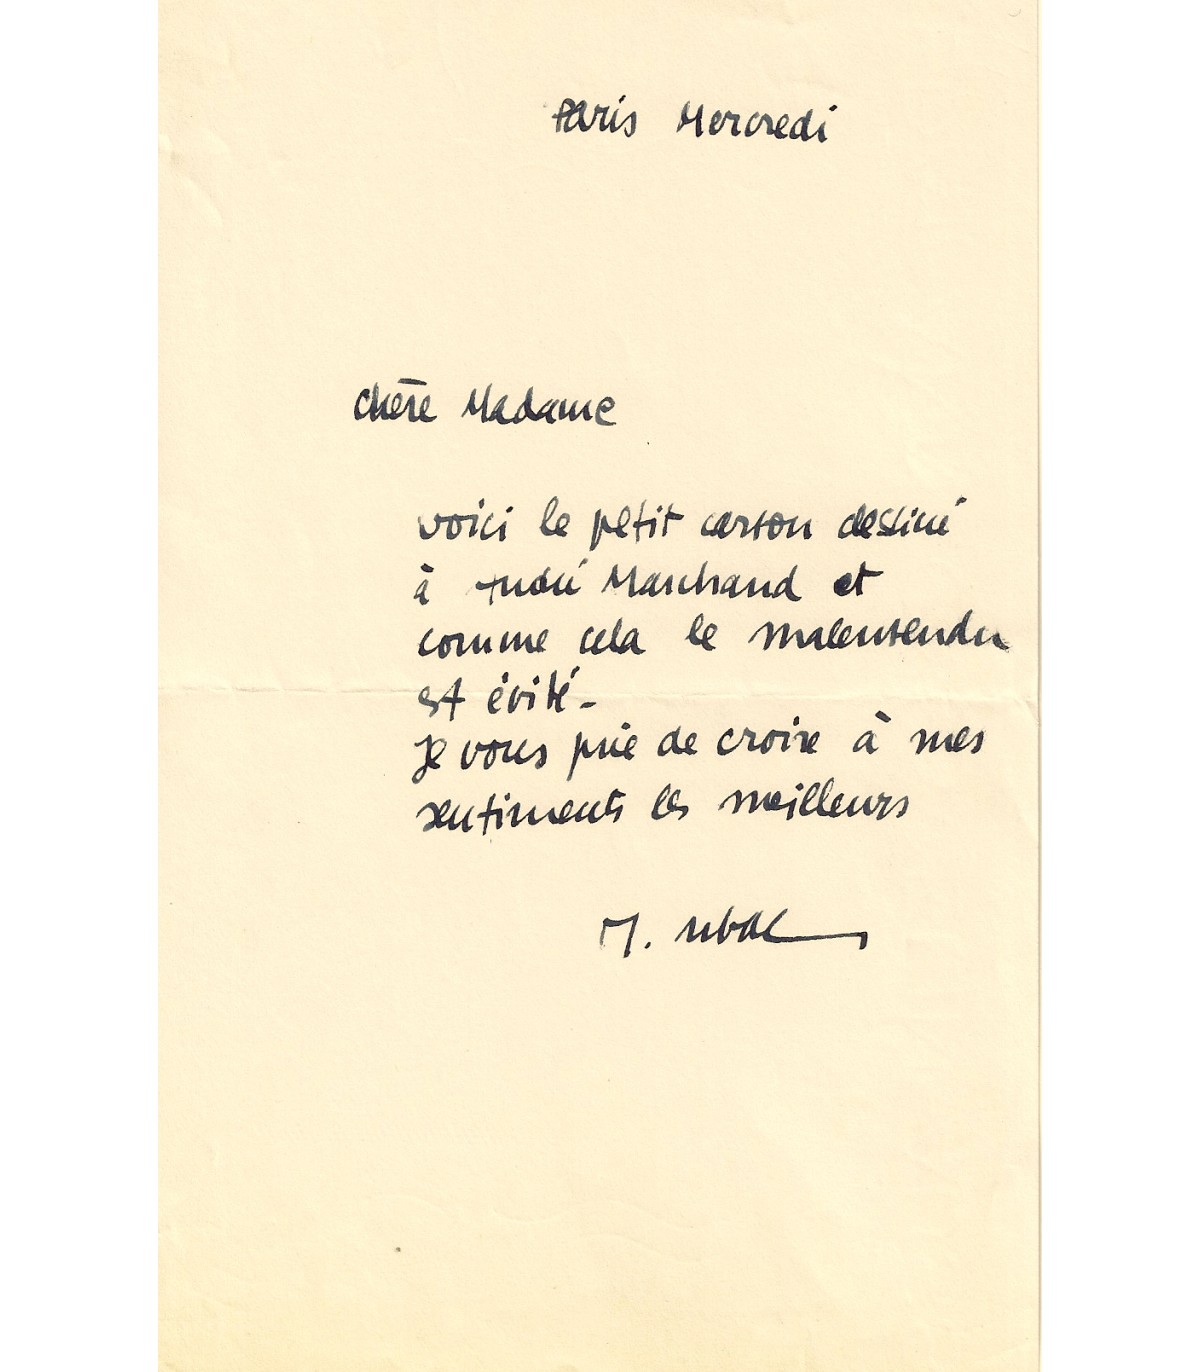 Paris Mercredi
Chère Madame
voici le petit carton destiné
à André Marchand et
comme cela le malentendu
est évité-
Je vous prie de croire à mes
sentiments les meilleurs
R. Ubac